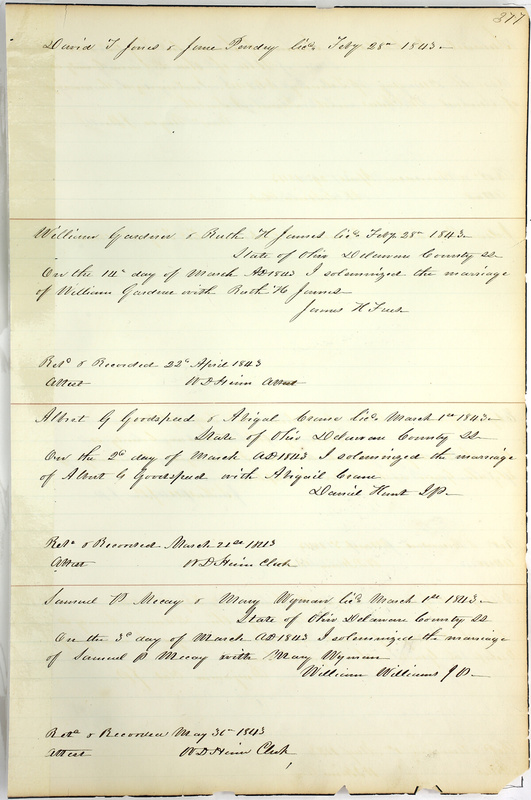 377
David T Jones & Jane Pendry licd Feby 28th 1843
William Gardner & Ruth H James licd Feby 28th 1843
State of Ohio Delaware County SS
On the 14th day of March AD 1843 I solemnized the marriage
of William Gardner with Ruth H James
James H
Retd & Recorded 22d April 1843
Attest W D Heim Attest
Albert G Goodspeed & Abigal Crane licd March 1st 1843
State of Ohio Delaware County SS
On the 2d day of March AD 1843 I solemnized the marriage
of Albert G Goodspeed with Abigail Crane
Daniel Hunt J P
Retd & Recorded March 21st 1843
Attest W D Heim Clerk
Samuel P Mccay & Mary Wyman licd March 1st 1843
State of Ohio Delaware County SS
On the 3d day of March AD 1843 I solemnized the marriage
of Samuel P Mccay with Mary Wyman
William Williams J P
Retd & Recorded May 3rd 1843
Attest W D Heim Clerk